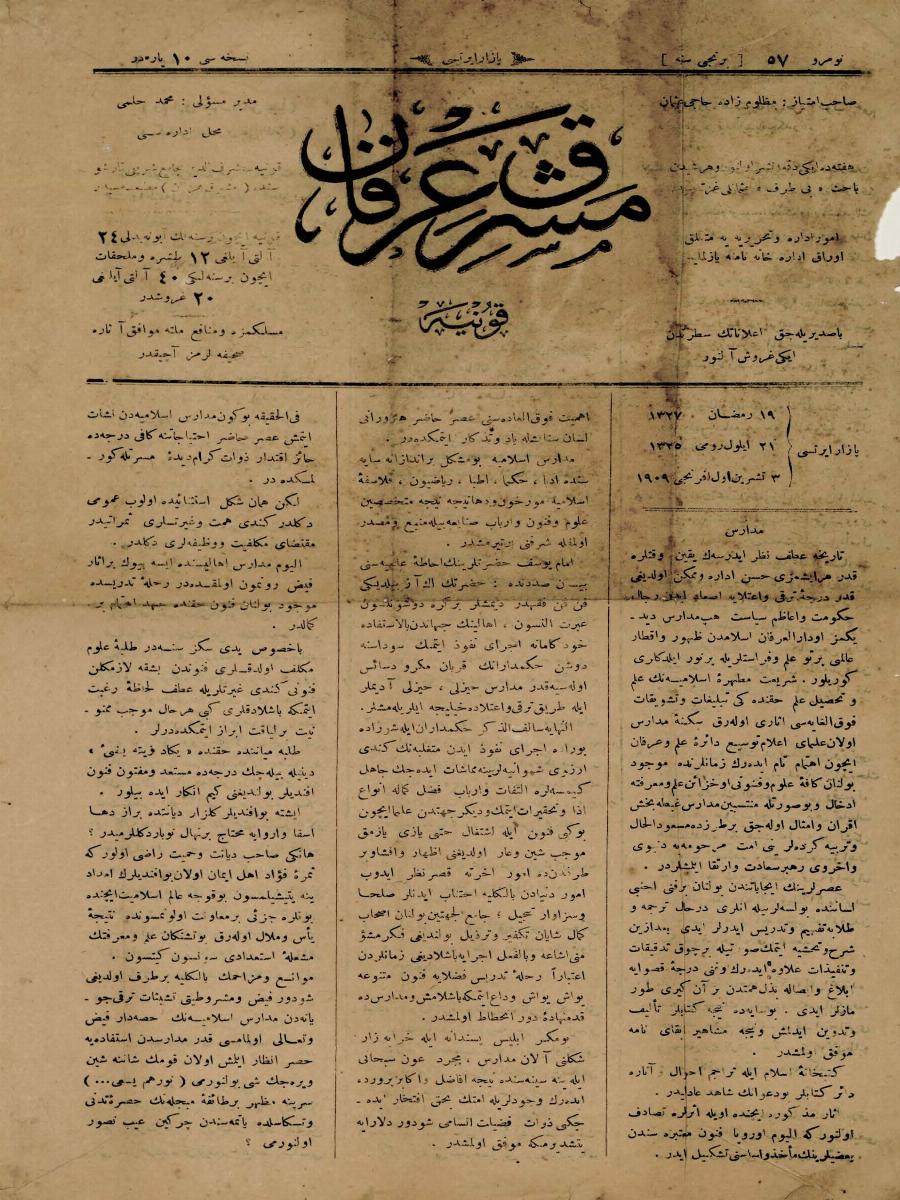 نومرو ٥٧ [ برنجی سنه ]
پازار ایرتسی
نسخه سی ١٠ پاره در
صاحب امتیاز : مظلوم زاده حاجی عثمان
امور اداره و تحریریه یه متعلق
اوراق اداره خانه نامنه یازلمالیدر
باصدیریله جق اعلاناتك سطرندن
ایکی غروش آلنور
مشرق عرفان
قونیه
مدیر مسؤلی : محمد حلمی
محل اداره سی
آلتی آیلغی ١٢ طشره و ملحقات
ایچون برسنه لکی ٤٠ آلتی آیلغی
٢٠ غروشدر
مسلکمزه و منافع ملته موافق آثاره
صحیفه لرمز آچیقدر
پازار ایرتسی
١٩ رمضان ١٣٢٧
٢١ ایلول رومی ١٣٢٥
٣ تشرین اول افرنجی ١٩٠٩
مدارس
تاریخه عطف نظر ایدرسه ك یقین وقتلره
قدر هر ایشمزی حسن اداره و ممکن اولدیغی
قدر درجهٔ ترقی و اعتلایه اصعاد ایدن رجال
حکومت و اعاظم سیاست هپ مدارس دید ـ
یکمز او دار العرفان اسلامدن ظهور و اقطار
عالمی پرتو علم و فراستلریله پرنور ایلدکلری
کوریلور . شریعت مطهرهٔ اسلامیه نك علم
و تحصیل علم حقنده کی تبلیغات و تشویقات
فوق الغایه سی آثاری اوله رق سکنهٔ مدارس
اولان علمای اعلام توسیع دائرهٔ علم و عرفان
ایچون اهتمام تام ایده رك زمانلرنده موجود
بولنان کافهٔ علوم و فنونی او خزائن علم و معرفته
ادخال و بوصورتله منتسبین مدارس غبطه بخش
اقران و امثال اوله جق برطرزده مسعود الحال
و تربیه کرده لرینی امت مرحومه یه دنیوی
و اخروی رهبر سعادت و ارتقا ایلشلردر .
عصرلرینك ایجاباتندن بولنان برفنی اجنبی
لسانده بولسه لر بیله آنلری درحال ترجمه و
طلابه تفهیم و تدریس ایدرلر ایدی بعدازین
شرح و تحشیه ایتمك صورتیله برچوق تدقیقات
و تنفیذات علاوه ایدرك و فنی درجهٔ قصوایه
ابلاغ و ایصاله بذل همتدن بر آن کیری طور
مازلر ایدی . بوسایه ده نیجه کتابلر تألیف
و تدوین ایدلمش و نیجه مشاهیر ابقای نامه
موفق اولمشدر .
کتبخانهٔ اسلام ایله تراجم احوال و آثاره
دائر کتابلر بودعوانك شاهد عادلیدر .
آثار مذکوره ایچنده اویله اثرلره تصادف
اولنورکه الیوم اوروپا فنون معتبره سندن
بعضیلرینك مأخذ و اساسنی تشکیل ایدر .
اهمیت فوق العاده سنی عصر حاضر هنرورانی
لسان ستایشله یاد و تذکار ایتمکده در .
مدارس اسلامیه بومشکل براندازانه سایه
سنده ادبا ، حکما ، اطبا ، ریاضیون ، فلاسفهٔ
اسلامیه مورخون و دها نیجه نیجه متخصصین
علوم و فنون و ارباب صنایعه بیله منبع و مصدر
اولمغله شرفنی آرتیرمشدر .
امام یوسف حضرتلرینك احاطهٔ علمیه سنی
بیان صددنده : حضرتك اك آز بیلدیکی
فن فن فقهدر دیمشلر برکره دوشونلسون
عبرت النسون ، اهالینك جهلندن بالاستفاده
خودکامانه اجرای نفوذ ایتمك سوداسنه
دوشن حکمدارانك قربان مکر و دسائس
اولسه یه قدر مدارس حیزلی ، حیزلی آدیملر
ایله طریق ترقی و اعتلاده خیلیجه ایلریله مشلر .
النهایه سالف الذکر حکمداران ایله شرزاده
بوراده اجرای نفوذ ایدن متغلبه نك کندی
آرزوی شهوانیه لرینه مماشات ایده جك جاهل
کیمسه لره التفات و ارباب فضل کماله انواع
اذا و تحقیرات ایتمك و دیکر جهتدن علما ایچون
بوکبی فنون ایله اشتغال حتی یازی یازمق
موجب شین و عار اولدیغنی اظهار و افشا و بر
طرفدنده امور آخرته قصر نظر ایدوب
امور دنیادن بالکلیه اجتناب ایدنلر صلحا
و سزاوار تبجیل ؛ جامع الجهتین بولنان اصحاب
کمال شایان تکفیر و ترذیل بولندیغی فکر مشؤ
منی اشاعه و بالفعل اجرایه باشلادیغی زمانلردن
اعتباراً رحلهٔ تدریس فضلایه فنون متنوعه
یواش یواش وداع ایتمکه باشلامش و مدارس ده
قدمنهادهٔ دور انحطاط اولمشدر .
بومکر ابلیس پسندانه ایله خرابه زار
شکلنی آلان مدارس ، بمجرد عون سبحانی
ایله ینه سینه سنده نیجه افاضل و اکابر پرورده
ایده رك وجودلریله امتك بحق افتخار ایده ـ
جکی ذوات فضیلت اتسامی شو دور دلارایه
یتشدیرمکه موفق اولمشدر .
فی الحقیقه بوکون مدارس اسلامیه دن نشأت
ایتمش عصر حاضر احتیاجاتنه کافی درجه ده
حائز اقتدار ذوات کرام دیدهٔ مسرتله کور ـ
لمسکده در .
لکن همان شکل استثناییده اولوب عمومی
دکلدر کندی همت و غیرتلری ثمراتیدر
مقتضای مکلفیت و وظیفه لری دکلدر .
الیوم مدارس اهالیسنده ایسه بیوك بر آثار
فیض رونمون اولمقده در رحلهٔ تدریسده
موجود بولنان فنون حقنده جهد و اهتمام بر
کمالدر .
باخصوص یدی سکز سنه در طلبهٔ علوم
مکلف اولدقلری فنوندن بشقه لازم کلن
فنونی کندی غیرتلریله عطف لحاظهٔ رغبت
ایتمکه باشلادقلری کبی هر حال موجب ممنو ـ
نیت بر لیاقت ابراز ایتمکده درلر .
طلبه میاننده حقنده « یکاد زیته یضیٔ »
دینیله بیله جك درجه ده مستعد و مفتون فنون
افندیلر بولندیغنی کیم انکار ایده بیلور .
ایشته بوافندیلر کلزار دیانتده براز دها
اسقا و اروایه محتاج بر نهال نوبار دکللرمیدر ؟
هانکی صاحب دیانت و حمیت راضی اولورکه
ثمرهٔ فؤاد اهل ایمان اولان بوافندیلرك امداد
ینه یتیشیلمسون بوقوجه عالم اسلامیت ایچنده
بونلره جزئی بر معاونت اولونمسونده نتیجهٔ
یأس و ملال اوله رق بوتشنکان علم و معرفتك
مشعلهٔ استعدادی سونسون کیتسون .
موانع و مزاحمك بالکلیه برطرف اولدیغی
شو دور فیض و مشروطیتی تشبثات ترقی جو ـ
یانه دن مدارس اسلامیه نك حصه دار فیض
و تعالی اولمامسی قدر مدارسدن استفاده یه
حصر انظار ایلمش اولان قومك شاننه شین
ویره جك شی بولنورمی ( نورهم یسعی... )
سرینه مظهر بر طائفهٔ مبجله نك حضرهٔ تدنی
و تکاسلده یاتمه سندن چرکین عیب تصور
اولنورمی ؟